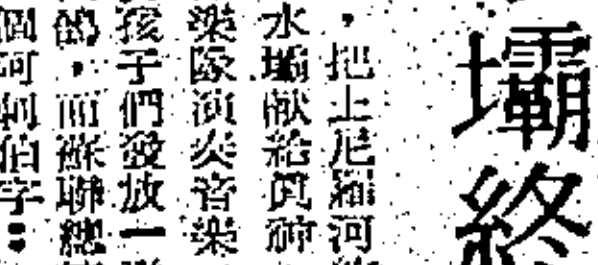 壩終
，把上尼羅河
水壩献給真神
樂隊演奏音樂
孩子們發放一
的，而蘇聯總
個阿剌伯字：